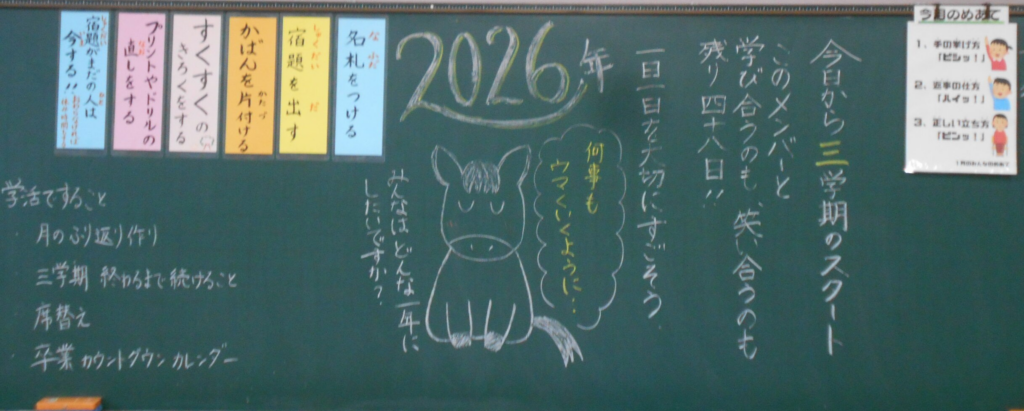 今月のめあて
1. 手の挙げ方
「ピシッ!」
2. 返事の仕方
「ハイッ!」
3. 正しい立ち方
「ピシッ!」
今日から三学期のスタート
このメンバーと
学び合うのも、笑い合うのも
残り四十八日!!
一日一日を大切にすごそう。
2026年
何事も
ウマくいくように…
みんなはどんな一年に
したいですか?
名札をつける
な ふだ
宿題を出す
しゅくだい だ
かばんを片付ける
かたづ
すくすくの
きろくをする
プリントやドリルの
直しをする
なお
宿題がまだの人は
しゅくだい
今する!!
学活ですること
・月のふり返り作り
・三学期 終わるまで続けること
・席替え
・卒業カウントダウンカレンダー